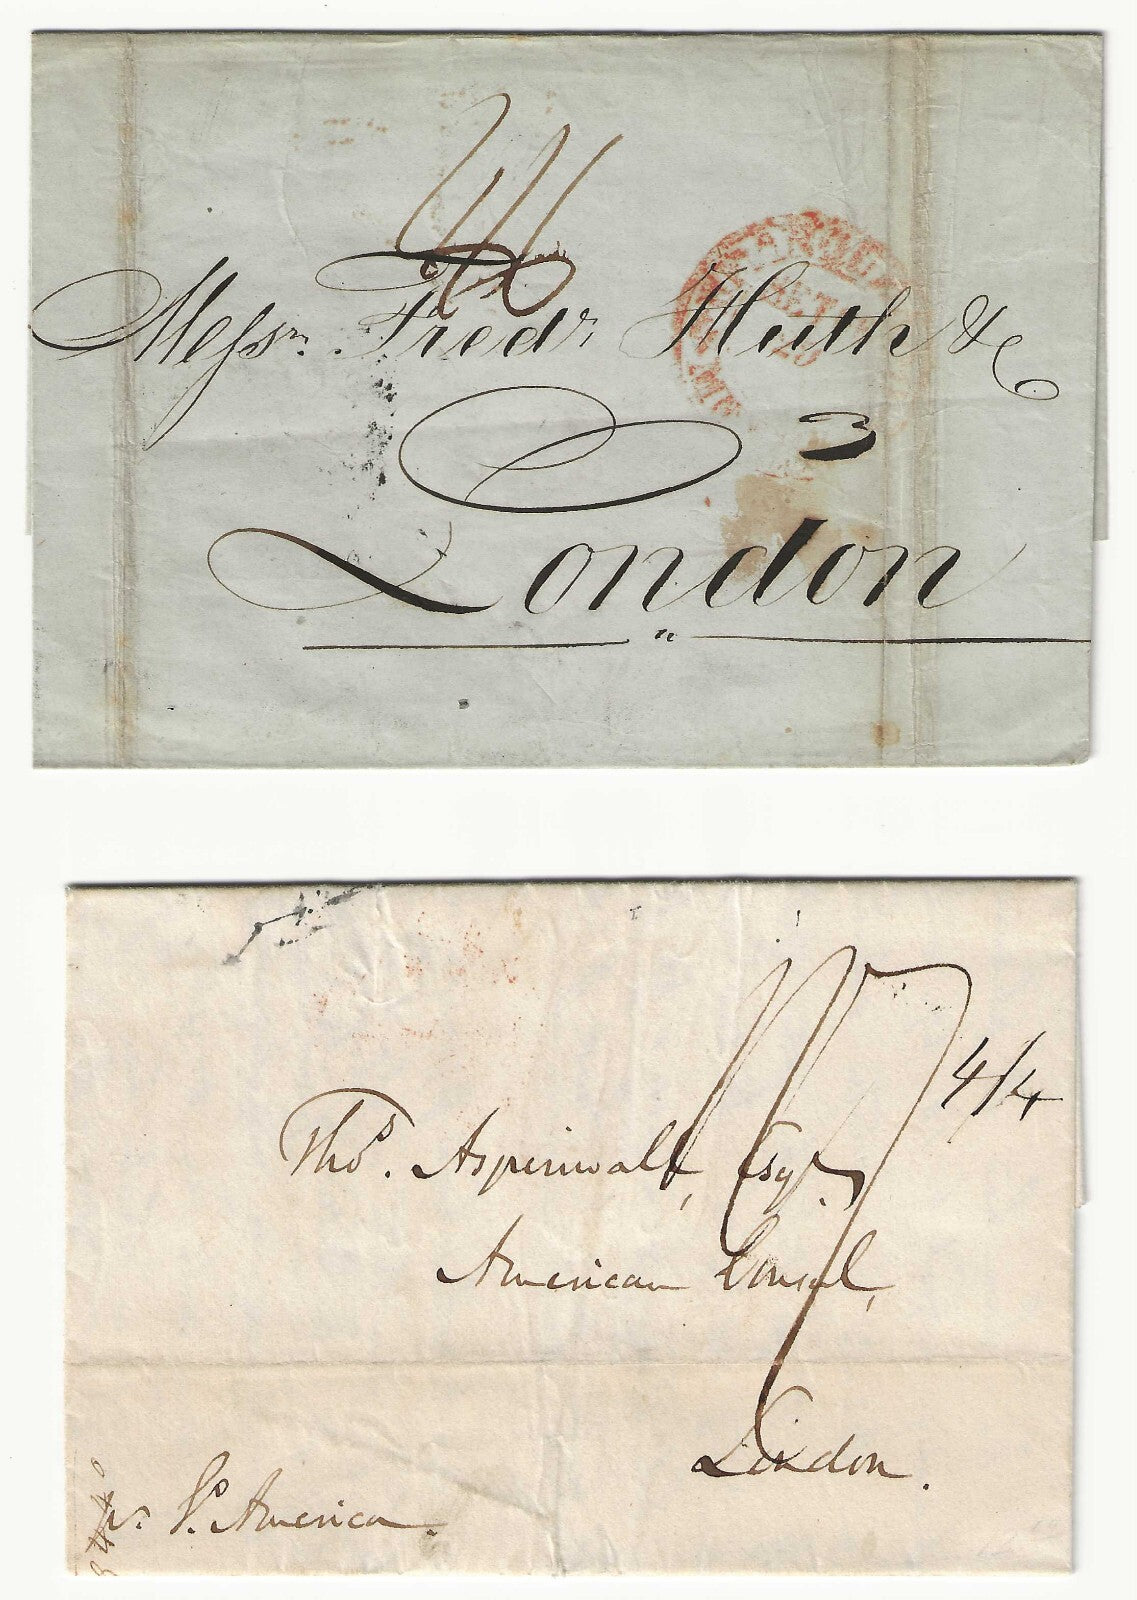 Messrs. Fredk. Huth & Co
3
London
4/4
Thos. Aspinwall, Esqr.
American Consul,
London.
pr. Sp. America.